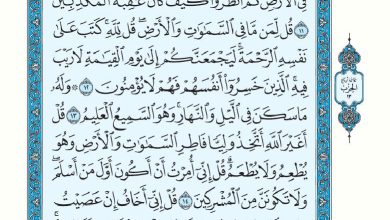 فِى ٱلْأَرْضِ ثُمَّ ٱنظُرُوا۟ كَيْفَ كَانَ عَـٰقِبَةُ ٱلْمُكَذِّبِينَ
١١ قُل لِّمَن مَّا فِى ٱلسَّمَـٰوَٰتِ وَٱلْأَرْضِ ۖ قُل لِّلَّهِ ۚ كَتَبَ عَلَىٰ
نَفْسِهِ ٱلرَّحْمَةَ ۚ لَيَجْمَعَنَّكُمْ إِلَىٰ يَوْمِ ٱلْقِيَـٰمَةِ لَا رَيْبَ
فِيهِ ۚ ٱلَّذِينَ خَسِرُوٓا۟ أَنفُسَهُمْ فَهُمْ لَا يُؤْمِنُونَ ١٢ ۞ وَلَهُۥ
مَا سَكَنَ فِى ٱلَّيْلِ وَٱلنَّهَارِ ۚ وَهُوَ ٱلسَّمِيعُ ٱلْعَلِيمُ ١٣
قُلْ أَغَيْرَ ٱللَّهِ أَتَّخِذُ وَلِيًّا فَاطِرِ ٱلسَّمَـٰوَٰتِ وَٱلْأَرْضِ وَهُوَ
يُطْعِمُ وَلَا يُطْعَمُ ۗ قُلْ إِنِّىٓ أُمِرْتُ أَنْ أَكُونَ أَوَّلَ مَنْ أَسْلَمَ ۖ
وَلَا تَكُونَنَّ مِنَ ٱلْمُشْرِكِينَ ١٤ قُلْ إِنِّىٓ أَخَافُ إِنْ عَصَيْتُ
الحزب
١٣